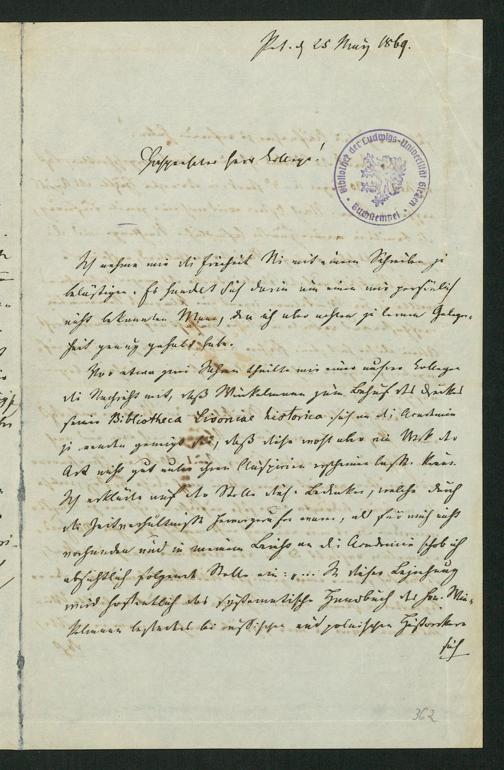 Pet. d. 25 März 1869.
Bibliothek der Ludwigs-Universität Giessen
Buchstempel
Hochverehrter Herr College!
Ich nehme mir die Freiheit Sie mit einem Schreiben zu
belästigen. Es handelt sich darin um einen mir persönlich
nicht bekannten Mann, den ich aber näher zu kennen Gelegen-
heit genug gehabt habe.
Vor etwa zwei Jahren theilte mir einer unserer Collegen
die Nachricht mit, daß Winkelmann zum Behuf des Druckes
seiner Bibliotheca Livoniae historica sich an die Academie
zu wenden geneigt sei, daß diese wohl aber ein Werk der
Art nicht gut unter ihren Auspicien erscheinen lassen könne.
Ich erklärte auf der Stelle, daß Bedenken, welche durch
die Zeitverhältnisse hervorgerufen waren, als für mich nicht
vorhanden und in meinem Bericht an die Academie schob ich
absichtlich folgende Stelle ein: „... In dieser Beziehung
wird hoffentlich das systematische Handbuch des Hrn. Win-
kelmann besonders bei russischen und polnischen Historikern
sich
362